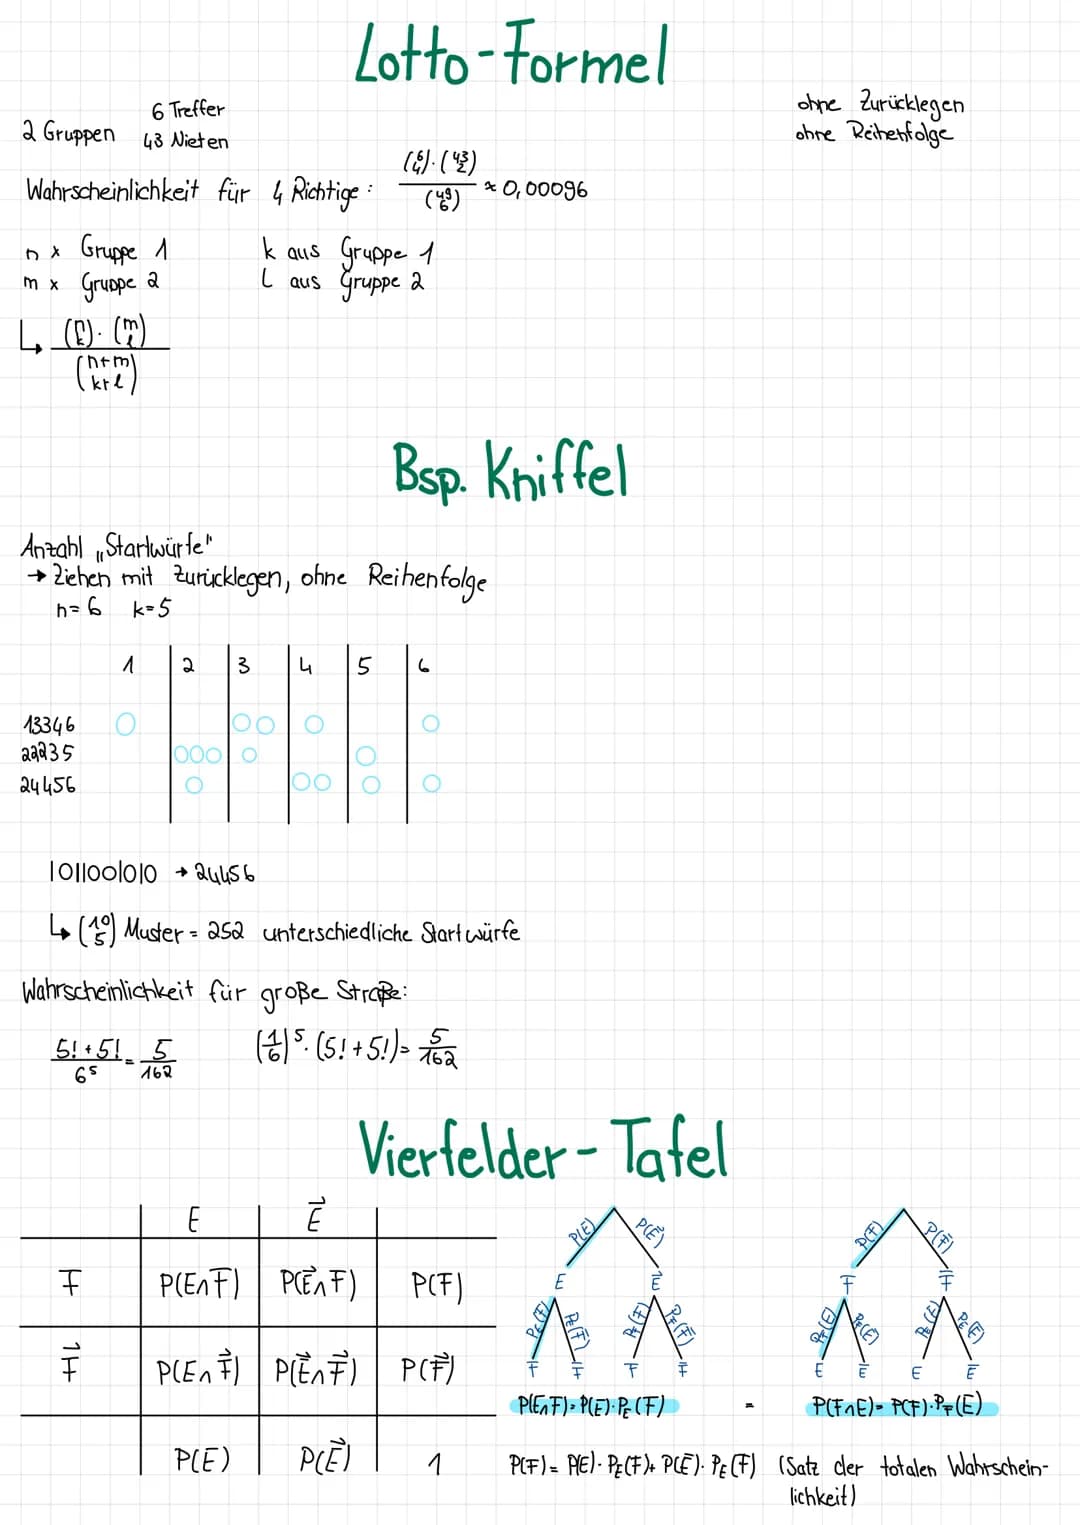 Lotto-Formel
ohne Zurücklegen
ohne Reihenfolge
2 Gruppen
6 Treffer
43 Nieten
Wahrscheinlichkeit für 4 Richtige: (6 4)·(43 2) / (49 6) ≈ 0,00096
n x Gruppe 1
m x Gruppe 2
k aus Gruppe 1
l aus Gruppe 2
↳ (n k)·(m l) / (n+m k+l)
Bsp. Kniffel
Anzahl „Startwürfe"
→ Ziehen mit Zurücklegen, ohne Reihenfolge
n=6 k=5
1 2 3 4 5 6
13346
22235
24456
|0||00|0|0 → 24456
↳ (10 5) Muster = 252 unterschiedliche Startwürfe
Wahrscheinlichkeit für große Straße:
5!+5! / 6⁵ = 5/162
(1/6)⁵·(5!+5!) = 5/162
Vierfelder-Tafel
E Ē
F P(E∩F) P(Ē∩F) P(F)
F̄ P(E∩F̄) P(Ē∩F̄) P(F̄)
P(E) P(Ē) 1
P(E) P(Ē)
E Ē
P_E(F) P_E(F̄) P_Ē(F) P_Ē(F̄)
F F̄ F F̄
P(E∩F)=P(E)·P_E(F)
=
P(F) P(F̄)
F F̄
P_F(E) P_F(Ē) P_F̄(E) P_F̄(Ē)
E Ē E Ē
P(F∩E)=P(F)·P_F(E)
P(F)=P(E)·P_E(F)+P(Ē)·P_Ē(F) (Satz der totalen Wahrschein-
lichkeit)